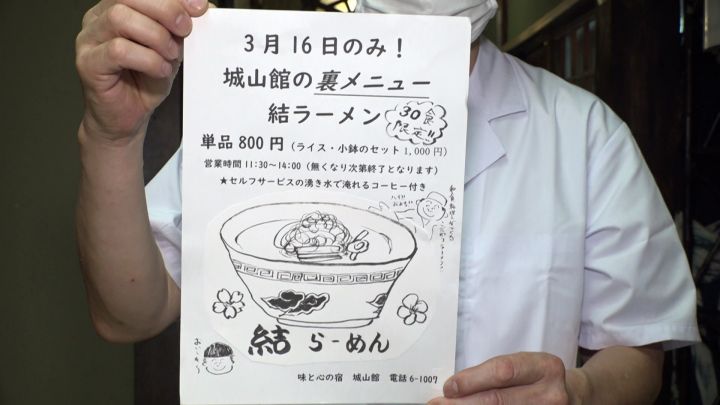 3月16日のみ！
城山館の裏メニュー
結ラーメン
30食
限定!!
単品800円（ライス・小鉢のセット1,000円）
営業時間 11:30～14:00（無くなり次第終了となります）
★セルフサービスの湧き水で淹れるコーヒー付き
結らーめん
味と心の宿　城山館　電話6-1007